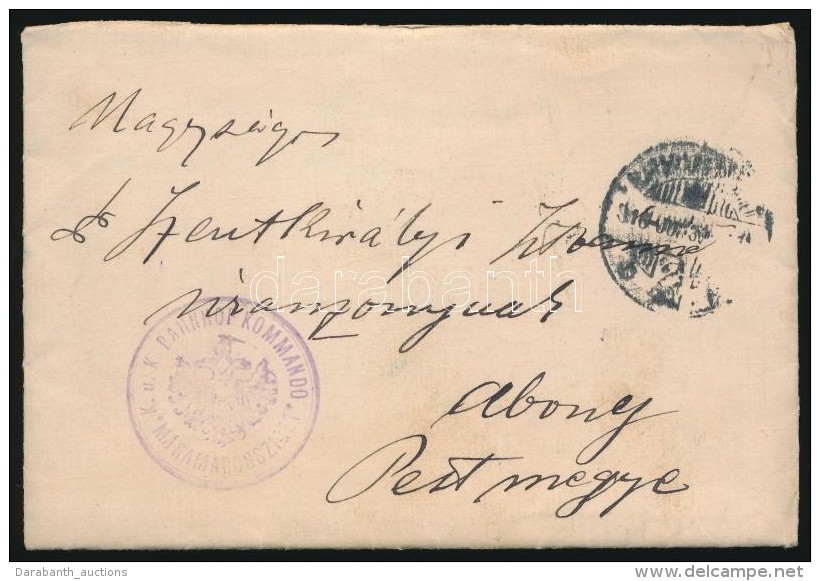 Magyságos
Dr Szentkirályi Istvánné
úrasszonynak
Abony
Pest megye
K. u. K. BAHNHOF KOMMANDO
MARAMAROSSZIGET
darabanth
Darabanth_auctions
www.delcampe.net